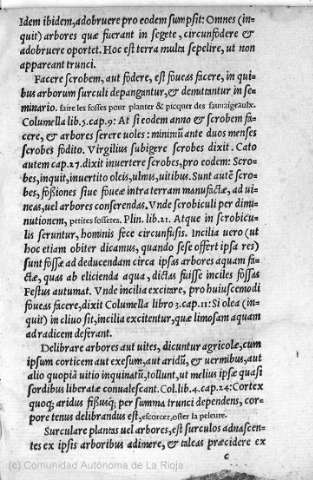 Idem ibidem, adobruere pro eodem sumpsit: Omnes (in-
quit) arbores quæ fuerant in segete, circunfodere &
adobruere oportet. Hoc est terra multa sepelire, ut non
appareant trunci.
Facere scrobem, aut fodere, est foueas facere, in qui-
bus arborum surculi depangantur, & demutantur in se-
minario. faire les fosses pour planter & picquer des sauuaigeaulx.
Columella lib.5.cap.9: At si eodem anno & scrobem fa-
cere, & arbores serere uoles: minimũ ante duos menses
scrobes fodito. Virgilius subigere scrobes dixit. Cato
autem cap.27. dixit inuertere scrobes, pro eodem: Scro-
bes, inquit, inuertito oleis, ulmis, uitibus. Sunt autẽ scro-
bes, foßiones siue foueæ intra terram manufactæ, ad ui-
neas, uel arbores conserendas. Vnde scrobiculi per dimi-
nutionem, petites fossetes. Plin. lib.21. Atque in scrobicu-
lis seruntur, hominis fece circunfusis. Incilia uero (ut
hoc etiam obiter dicamus, quando sese offert ipsa res)
sunt fossæ ad deducendam circa ipsas arbores aquam fa-
ctæ, quas ab elicienda aqua, dictas fuisse inciles fossas
Festus autumat. Vnde incilia excidere, pro huiuscemodi
foueas facere, dixit Columella libro 3.cap.11: Si olea (in-
quit) in cliuo sit, incilia excitentur, quæ limosam aquam
ad radicem deferant.
Delibrare arbores aut uites, dicuntur agricolæ, cum
ipsum corticem aut exesum, aut aridũ, & uermibus, aut
alio quopiã uitio inquinatũ, tollunt, ut melius ipsæ quasi
sordibus liberatæ conualescant. Col.lib.4.cap.24: Cortex
quoq; aridus fißusq; per summa trunci dependens, cor-
pore tenus delibrandus est, escorcer, oster la peleure.
Surculare plantas uel arbores, est surculos adnascen-
tes ex ipsis arboribus adimere, & taleas præcidere ex
c
(c) Comunidad Autónoma de La Rioja